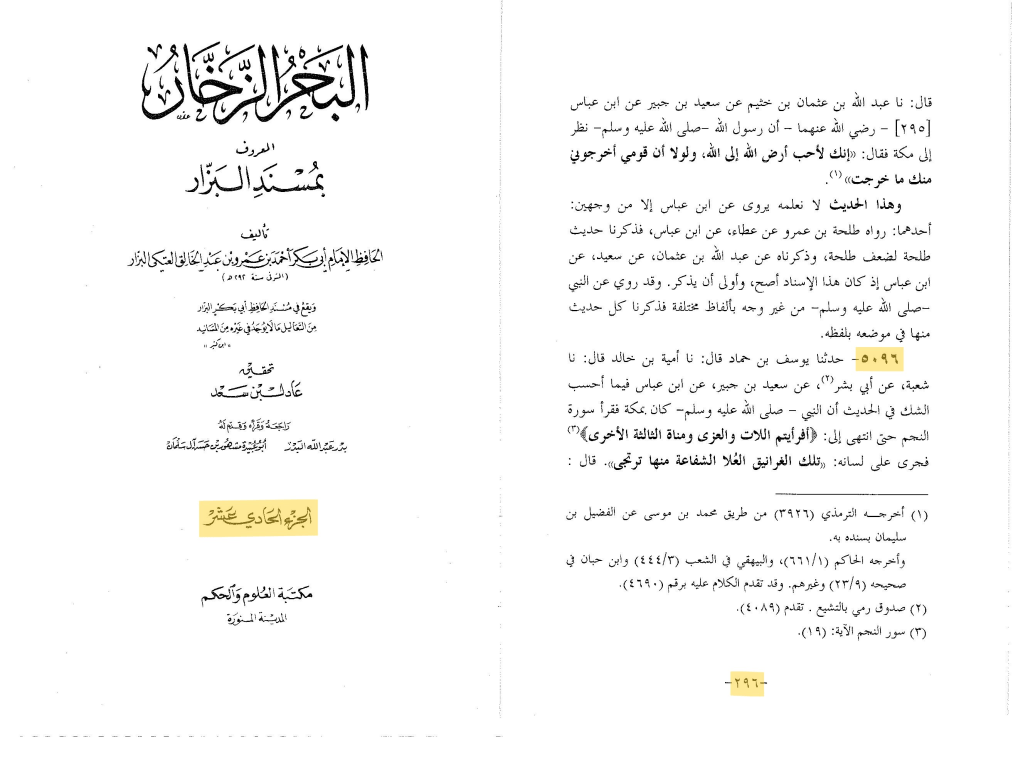 البحر الزخار
المعروف
بمسند البزار
تأليف
الحافظ الإمام أبي بكر أحمد بن عمرو بن عبد الخالق العتكي البزار
(المتوفى سنة ٢٩٢ هـ)
ويقع في مسند الحافظ أبي بكر البزار
من التعاليل ما لا يوجد في غيره من المسانيد
« ابن كثير »
تحقيق
عادل بن سعد
راجعه وقرأه وقدم له
بدر عبد الله البدر أبو عبيدة مشهور بن حسن آل سلمان
الجزء الحادي عشر
مكتبة العلوم والحكم
المدينة المنورة
قال: نا عبد الله بن عثمان بن خثيم عن سعيد بن جبير عن ابن عباس
[٢٩٥] - رضي الله عنهما - أن رسول الله -صلى الله عليه وسلم- نظر
إلى مكة فقال: «إنك لأحب أرض الله إلى الله، ولولا أن قومي أخرجوني
منك ما خرجت»(١).
وهذا الحديث لا نعلمه يروى عن ابن عباس إلا من وجهين:
أحدهما: رواه طلحة بن عمرو عن عطاء، عن ابن عباس، فذكرنا حديث
طلحة لضعف طلحة، وذكرناه عن عبد الله بن عثمان، عن سعيد، عن
ابن عباس إذ كان هذا الإسناد أصح، وأولى أن يذكر. وقد روي عن النبي
-صلى الله عليه وسلم- من غير وجه بألفاظ مختلفة فذكرنا كل حديث
منها في موضعه بلفظه.
٥٠٩٦- حدثنا يوسف بن حماد قال: نا أمية بن خالد قال: نا
شعبة، عن أبي بشر(٢)، عن سعيد بن جبير، عن ابن عباس فيما أحسب
الشك في الحديث أن النبي - صلى الله عليه وسلم- كان بمكة فقرأ سورة
النجم حتى انتهى إلى: ﴿أفرأيتم اللات والعزى ومناة الثالثة الأخرى﴾(٣)
فجرى على لسانه: «تلك الغرانيق العُلا الشفاعة منها ترتجى». قال :
(١) أخرجـــه الترمذي (٣٩٢٦) من طريق محمد بن موسى عن الفضيل بن
سليمان بسنده به.
وأخرجه الحاكم (٦٦١/١)، والبيهقي في الشعب (٤٤٤/٣) وابن حبان في
صحيحه (٢٣/٩) وغيرهم. وقد تقدم الكلام عليه برقم (٤٦٩٠).
(٢) صدوق رمي بالتشيع . تقدم (٤٠٨٩).
(٣) سور النجم الآية: (١٩).
-٢٩٦-